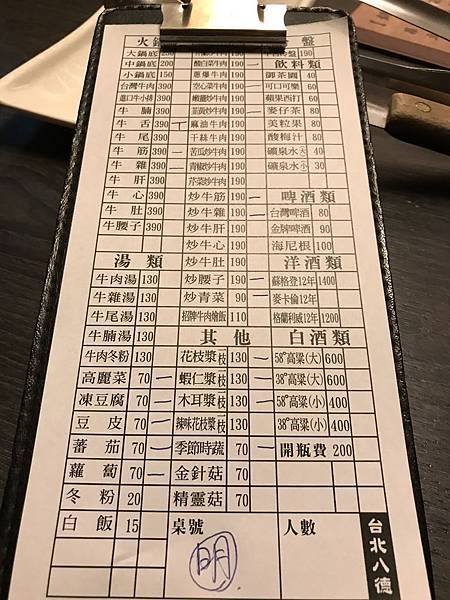 火 盤
大鍋底 200 牛肉 190 盤 190
中鍋底 200 酸白菜牛肉 190 飲料類
小鍋底 150 蔥爆牛肉 190 御茶園 40
台灣牛肉 390 空心菜牛肉 190 可口可樂 60
進口牛小排 390 嫩薑炒牛肉 190 蘋果西打 60
牛腩 390 韮黃炒牛肉 190 麥仔茶 80
牛舌 390 麻油牛肉 190 美粒果 80
牛尾 390 干絲牛肉 190 酸梅汁 80
牛筋 390 苦瓜炒牛肉 190 礦泉水大 40
牛雜 390 青椒炒牛肉 190 礦泉水小 30
牛肝 390 芹菜炒牛肉 190
牛心 390 炒牛筋 190 啤酒類
牛肚 390 炒牛雜 190 台灣啤酒 80
牛腰子 390 炒牛肝 190 金牌啤酒 90
炒牛心 190 海尼根 100
湯類 炒牛肚 190 洋酒類
牛肉湯 130 炒腰子 190 蘇格登12年 1400
牛雜湯 130 炒青菜 90 麥卡倫12年
牛尾湯 130 招牌牛肉燴飯 110 格蘭利威12年 1200
牛腩湯 130 其他 白酒類
牛肉冬粉 130 花枝漿一枝 130 58°高粱(大) 600
高麗菜 70 蝦仁漿一枝 130 38°高粱(大) 600
凍豆腐 70 木耳漿一枝 130 58°高粱(小) 400
豆皮 70 辣味花枝漿一枝 130 38°高粱(小) 400
蕃茄 70 季節時蔬 70 開瓶費 200
蘿蔔 70 金針菇 70
冬粉 20 精靈菇 70
白飯 15 桌號 人數
明
台北八德